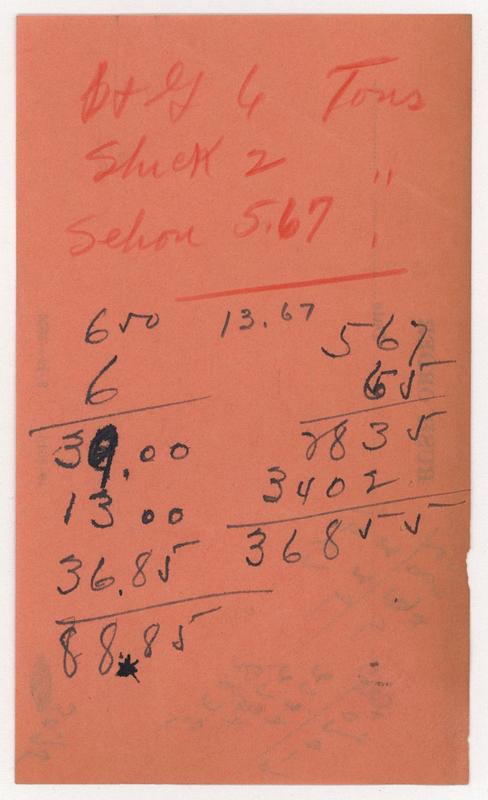 D+G 6 Tons
Shick 2 "
Sehon 5.67 "
13.67
650
6
39.00
13 00
36.85
88.85
567
65
2835
3402
36855